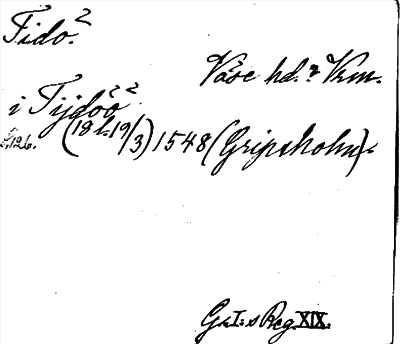 Tido.²
Väse hd. Vrm.
i Tijdoo²
s. 126. (18 l. 19/3) 1548 (Gripsholm).
G. I:s Reg. XIX.